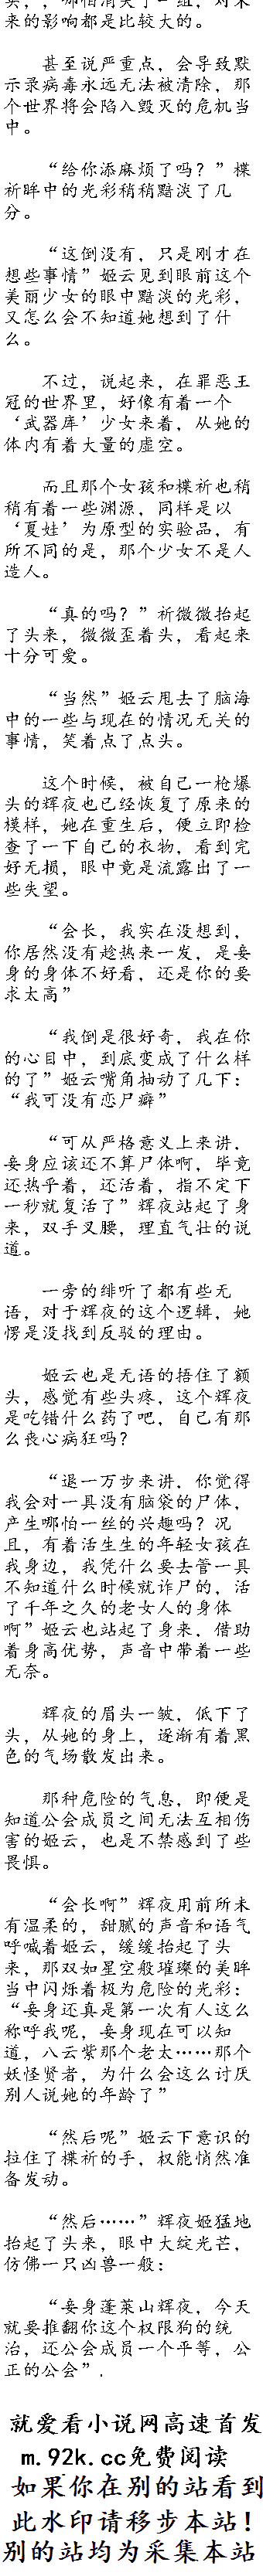 来的影响都是比较大的。
甚至说严重点，会导致默
示录病毒永远无法被清除，那
个世界将会陷入毁灭的危机当
中。
“给你添麻烦了吗？”楪
祈眸中的光彩稍稍黯淡了几
分。
“这倒没有，只是刚才在
想些事情”姬云见到眼前这个
美丽少女的眼中黯淡的光彩，
又怎么会不知道她想到了什
么。
不过，说起来，在罪恶王
冠的世界里，好像有着一个
‘武器库’少女来着，从她的
体内有着大量的虚空。
而且那个女孩和楪祈也稍
稍有着一些渊源，同样是以
‘夏娃’为原型的实验品，有
所不同的是，那个少女不是人
造人。
“真的吗？”祈微微抬起
了头来，微微歪着头，看起来
十分可爱。
“当然”姬云甩去了脑海
中的一些与现在的情况无关的
事情，笑着点了点头。
这个时候，被自己一枪爆
头的辉夜也已经恢复了原来的
模样，她在重生后，便立即检
查了一下自己的衣物，看到完
好无损，眼中竟是流露出了一
些失望。
“会长，我实在没想到，
你居然没有趁热来一发，是妾
身的身体不好看，还是你的要
求太高”
“我倒是很好奇，我在你
的心目中，到底变成了什么样
的了”姬云嘴角抽动了几下：
“我可没有恋尸癖”
“可从严格意义上来讲，
妾身应该还不算尸体啊，毕竟
还热乎着，还活着，指不定下
一秒就复活了”辉夜站起了身
来，双手叉腰，理直气壮的说
道。
一旁的绯听了都有些无
语，对于辉夜的这个逻辑，她
愣是没找到反驳的理由。
姬云也是无语的捂住了额
头，感觉有些头疼，这个辉夜
是吃错什么药了吧，自己有那
么丧心病狂吗？
“退一万步来讲，你觉得
我会对一具没有脑袋的尸体，
产生哪怕一丝的兴趣吗？况
且，有着活生生的年轻女孩在
我身边，我凭什么要去管一具
不知道什么时候就诈尸的，活
了千年之久的老女人的身体
啊”姬云也站起了身来，借助
着身高优势，声音中带着一些
无奈。
辉夜的眉头一皱，低下了
头，从她的身上，逐渐有着黑
色的气场散发出来。
那种危险的气息，即便是
知道公会成员之间无法互相伤
害的姬云，也是不禁感到了些
畏惧。
“会长啊”辉夜用前所未
有温柔的，甜腻的声音和语气
呼喊着姬云，缓缓抬起了头
来，那双如星空般璀璨的美眸
当中闪烁着极为危险的光彩：
“妾身还真是第一次有人这么
称呼我呢，妾身现在可以知
道，八云紫那个老太……那个
妖怪贤者，为什么会这么讨厌
别人说她的年龄了”
“然后呢”姬云下意识的
拉住了楪祈的手，权能悄然准
备发动。
“然后……”辉夜姬猛地
抬起了头来，眼中大绽光芒，
仿佛一只凶兽一般：
“妾身蓬莱山辉夜，今天
就要推翻你这个权限狗的统
治，还公会成员一个平等，公
正的公会”.
就爱看小说网高速首发
m.92k.cc免费阅读
如果你在别的站看到
此水印请移步本站！
别的站均为采集本站